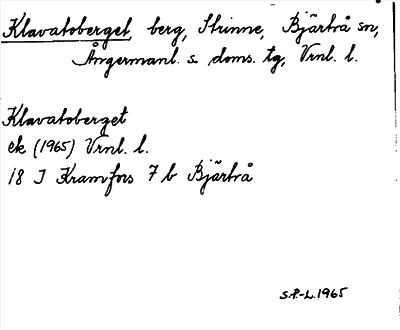 Klavatoberget, berg, Strinne, Bjärtrå sn,
Ångermanl. s. doms. tg, Vrnl. l.
Klavatoberget
ek (1965) Vrnl. l.
18 I Kramfors 7 b Bjärtrå
S.P.-L. 1965